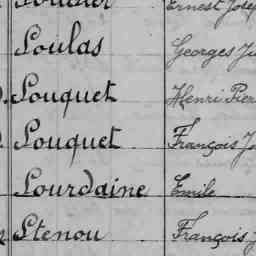 Ernest Jose
Loulas Georges Ju
Louquet Henri Pier
Louquet François Jo
Lourdaine Emile
Ltenou François J